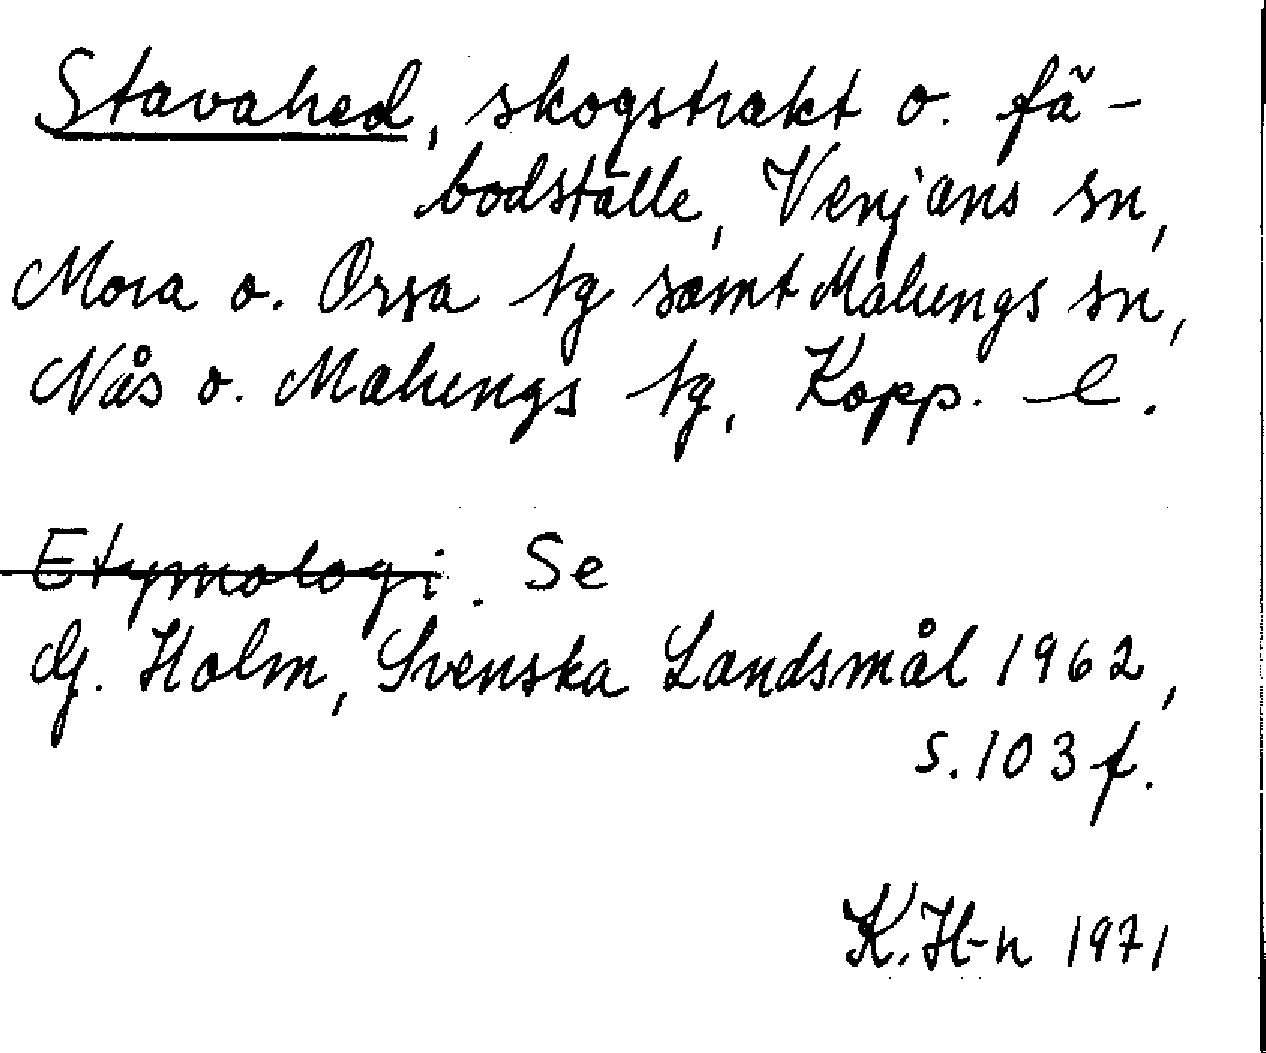 Stavahed, skogstrakt o. fä-
bodställe, Venjans sn,
Mora o. Orsa tg samt Malungs sn,
Nås o. Malungs tg, Kopp. l.
Etymologi. Se
G. Holm, Svenska Landsmål 1962,
s. 103 f.
K. H-n 1971